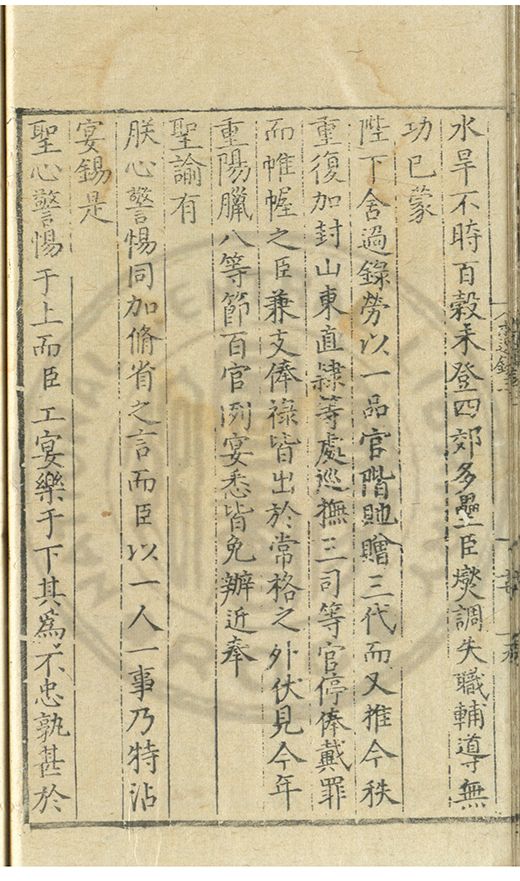 水旱不時百穀未登四郊多壘臣燮調失職輔導無
功已蒙
陛下舍過錄勞以一品官階貤贈三代而又推今秩
重復加封山東直隸等處巡撫三司等官停俸戴罪
而帷幄之臣兼支俸祿皆出於常格之外伏見今年
重陽臘八等節百官例宴悉皆免辦近奉
聖諭有
朕心警惕同加脩省之言而臣以一人一事乃特沾
宴錫是
聖心警惕于上而臣工宴樂于下其爲不忠孰甚於